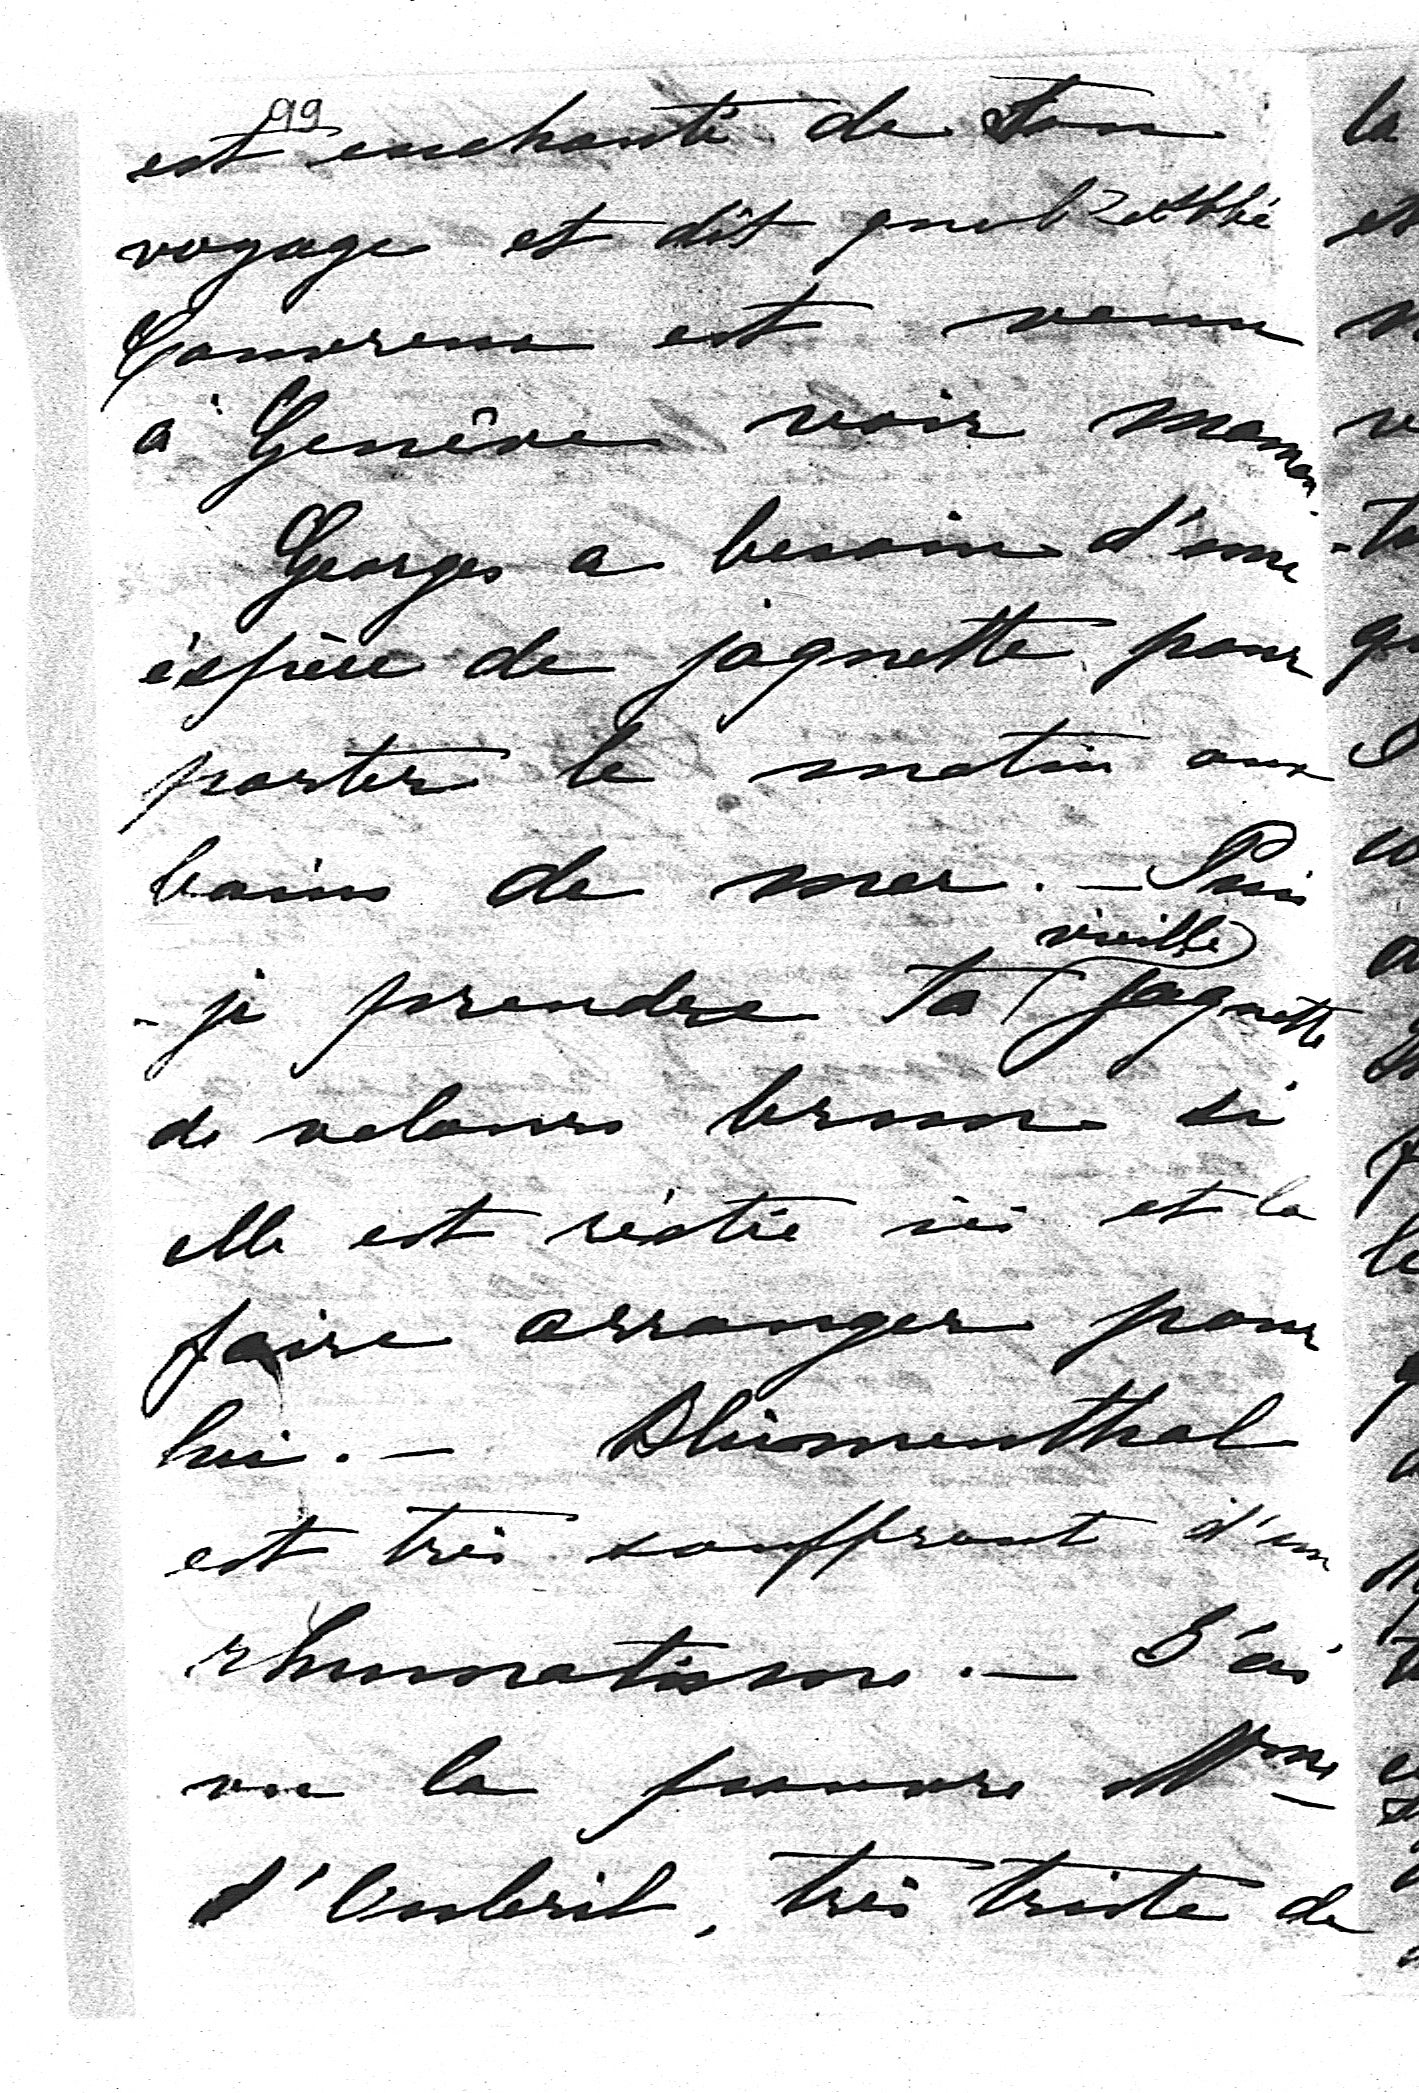 99
est enchanté de son
voyage et dit que l'abbé
est venu
à Genève voir maman.
Georges a besoin d'une
éspèce de jaquette pour
porter le matin aux
bains de mer. – Puis
vieille
-je prendre ta jaquette
de velours brune si
elle est réstée ici et la
faire arranger pour
lui. – Blumenthal
est très souffrant d'un
rhumatisme. – J'ai
vu la pauvre Mme
très triste de